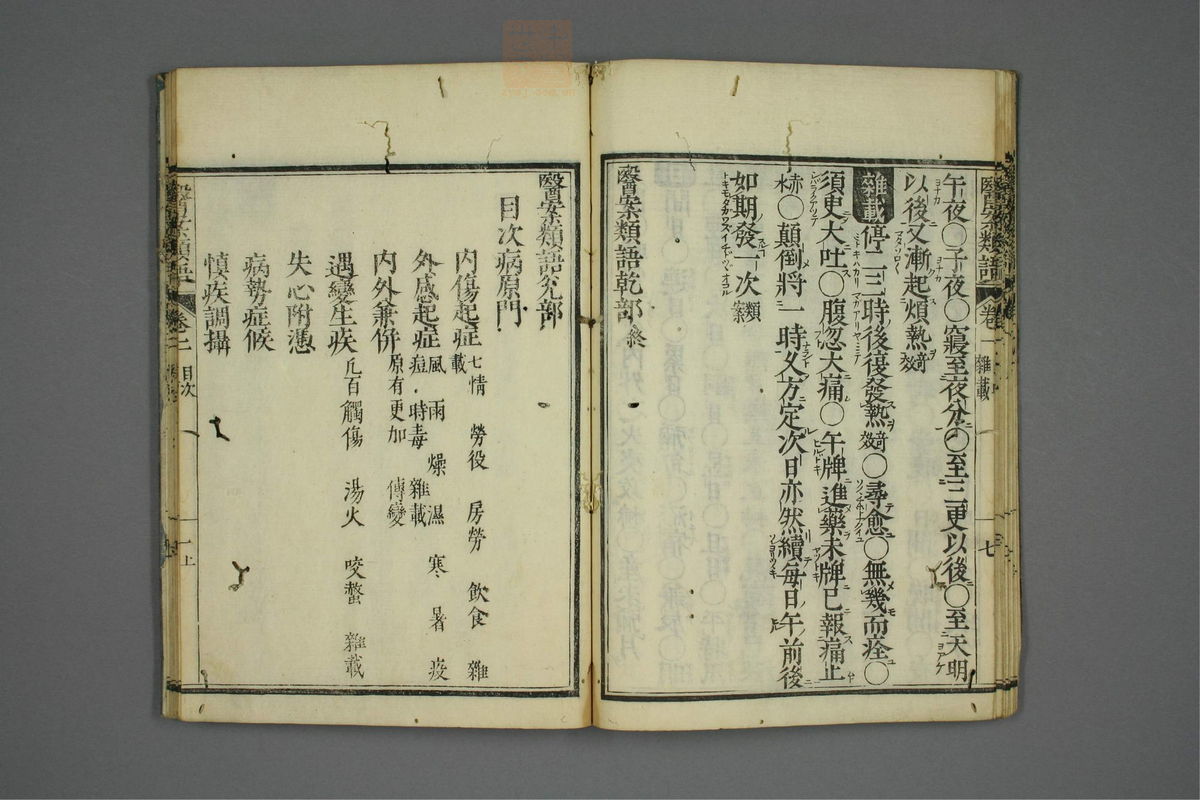 午夜〇子夜〇寢至夜分〇至三更以後〇至天明
以後又漸起煩熱奇效
雜載停二三時後復發熱奇效〇尋愈〇無幾而痊〇
須臾大吐〇腹忽大痛〇午牌進藥未牌已報痛止
赤水〇顛倒將一時又方定次日亦然續每日午前後
如期發一次類案
醫案類語乾部終
醫案類語卷一 雜載 七
醫案類語兊部
目次病原門
內傷起症 七情 勞役 房勞 飲食 雜載
外感起症 風 雨 燥 濕 寒 暑 疫 痘 時毒 雜載
內外兼併 原有更加 傳變
遇變生疾 凡百觸傷 湯火 咬螫 雜載
失心附憑
病勢症候
慎疾調攝
卷二 目次 一上